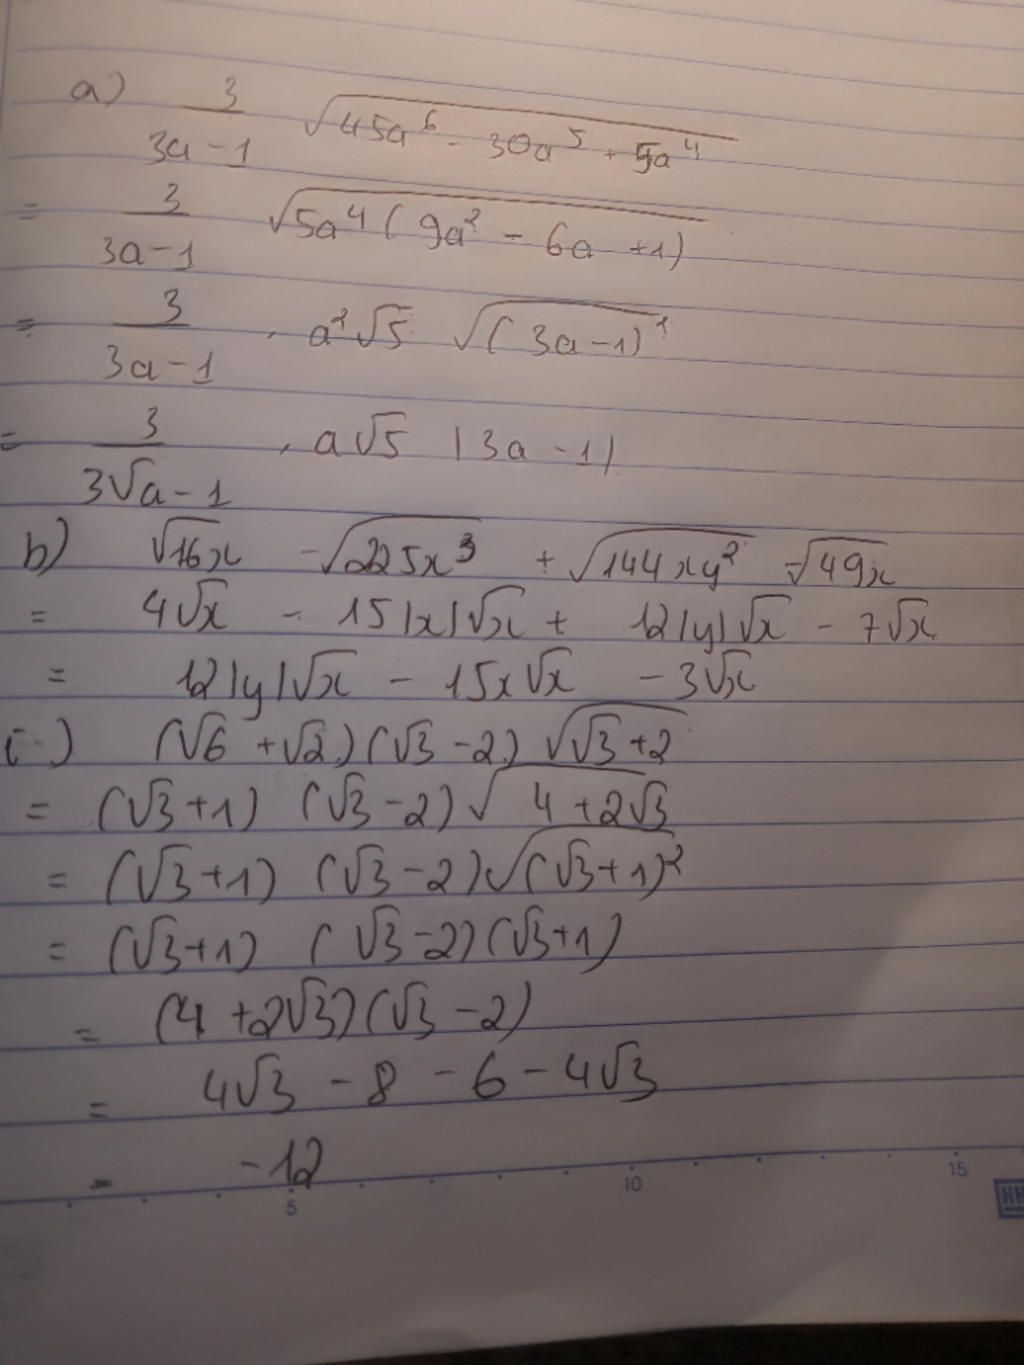 a) 3/(3a-1) √(45a⁶ - 30a⁵ + 5a⁴)
= 3/(3a-1) √(5a⁴(9a² - 6a +1))
= 3/(3a-1) . a²√5 √((3a-1)²)
= 3/(3√a-1) . a√5 |3a-1|
b) √16x - √(225x³) + √(144xy²) - √(49x)
= 4√x - 15|x|√x + 12|y|√x - 7√x
= 12|y|√x - 15x√x - 3√x
c) (√6 + √2)(√3 - 2) √(√3+2)
= (√3+1) (√3-2)√(4+2√3)
= (√3+1) (√3-2)√((√3+1)²)
= (√3+1) (√3-2)(√3+1)
= (4+2√3)(√3-2)
= 4√3 - 8 - 6 - 4√3
= -12
5 10 15